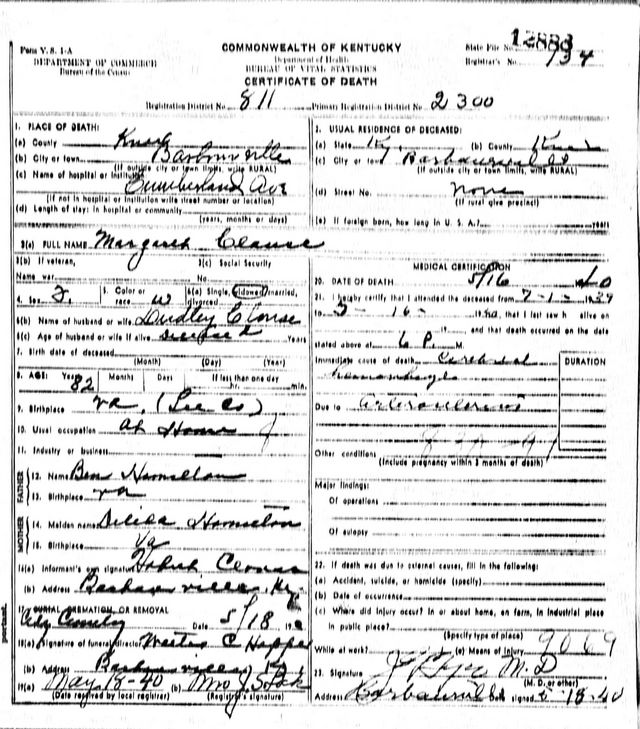 Form V. S. 1-A
DEPARTMENT OF COMMERCE
Bureau of the Census
COMMONWEALTH OF KENTUCKY
Department of Health
BUREAU OF VITAL STATISTICS
CERTIFICATE OF DEATH
State File No. 12888
Registrar's No. 134
Registration District No. 811 Primary Registration District No. 2300
1. PLACE OF DEATH:
(a) County Knox
(b) City or town Barbourville
(If outside city or town limits, write RURAL)
(c) Name of hospital or institution
Cumberland Ave
(If not in hospital or institution write street number or location)
(d) Length of stay: In hospital or community
(years, months or days)
2. USUAL RESIDENCE OF DECEASED:
(a) State Ky. (b) County Knox
(c) City or town Barbourville
(If outside city or town limits, write RURAL)
(d) Street No. None
(If rural give precinct)
(e) If foreign born, how long in U. S. A.? years
3(a) FULL NAME Margaret Clouse
3(b) If veteran, 3(c) Social Security
Name war No.
4. Sex F. 5. Color or race w 6(a) Single, widowed, married, divorced
6(b) Name of husband or wife Dudley Clouse
6(c) Age of husband or wife if alive deceased Years
7. Birth date of deceased
(Month) (Day) (Year)
8. AGE: Years 82 Months Days If less than one day
hr. min.
9. Birthplace va. (Lee Co)
10. Usual occupation at Home
11. Industry or business
FATHER
12. Name Ben Hamelton
13. Birthplace va
MOTHER
14. Maiden name Hamelton
15. Birthplace Va
16(a) Informant's own signature Clouse
(b) Address Barbourville, Ky.
17. BURIAL, CREMATION, OR REMOVAL
City Cemetery Date 5/18 19
18(a) Signature of funeral director C Hopper
(b) Address Barbourville Ky.
19(a) May 18-40 (b) Mrs J. S.
(Date received by local registrar) (Registrar's signature)
MEDICAL CERTIFICATION
20. DATE OF DEATH 5/16 40
21. I hereby certify that I attended the deceased from 7-1- 1939
to 5-16- 1940, that I last saw h alive on
19 and that death occurred on the date
stated above at 6 P. M.
Immediate cause of death Cerebral
hemorrhage
DURATION
Due to
Other conditions
(Include pregnancy within 3 months of death)
Major findings:
Of operations
Of autopsy
22. If death was due to external causes, fill in the following:
(a) Accident, suicide, or homicide (specify)
(b) Date of occurrence
(c) Where did injury occur? In or about home, on farm, in industrial place
in public place?
(Specify type of place)
While at work? (e) Means of injury
23. Signature M. D
(M. D. or other)
Address Barbourville Date signed 5-18-40
portant.